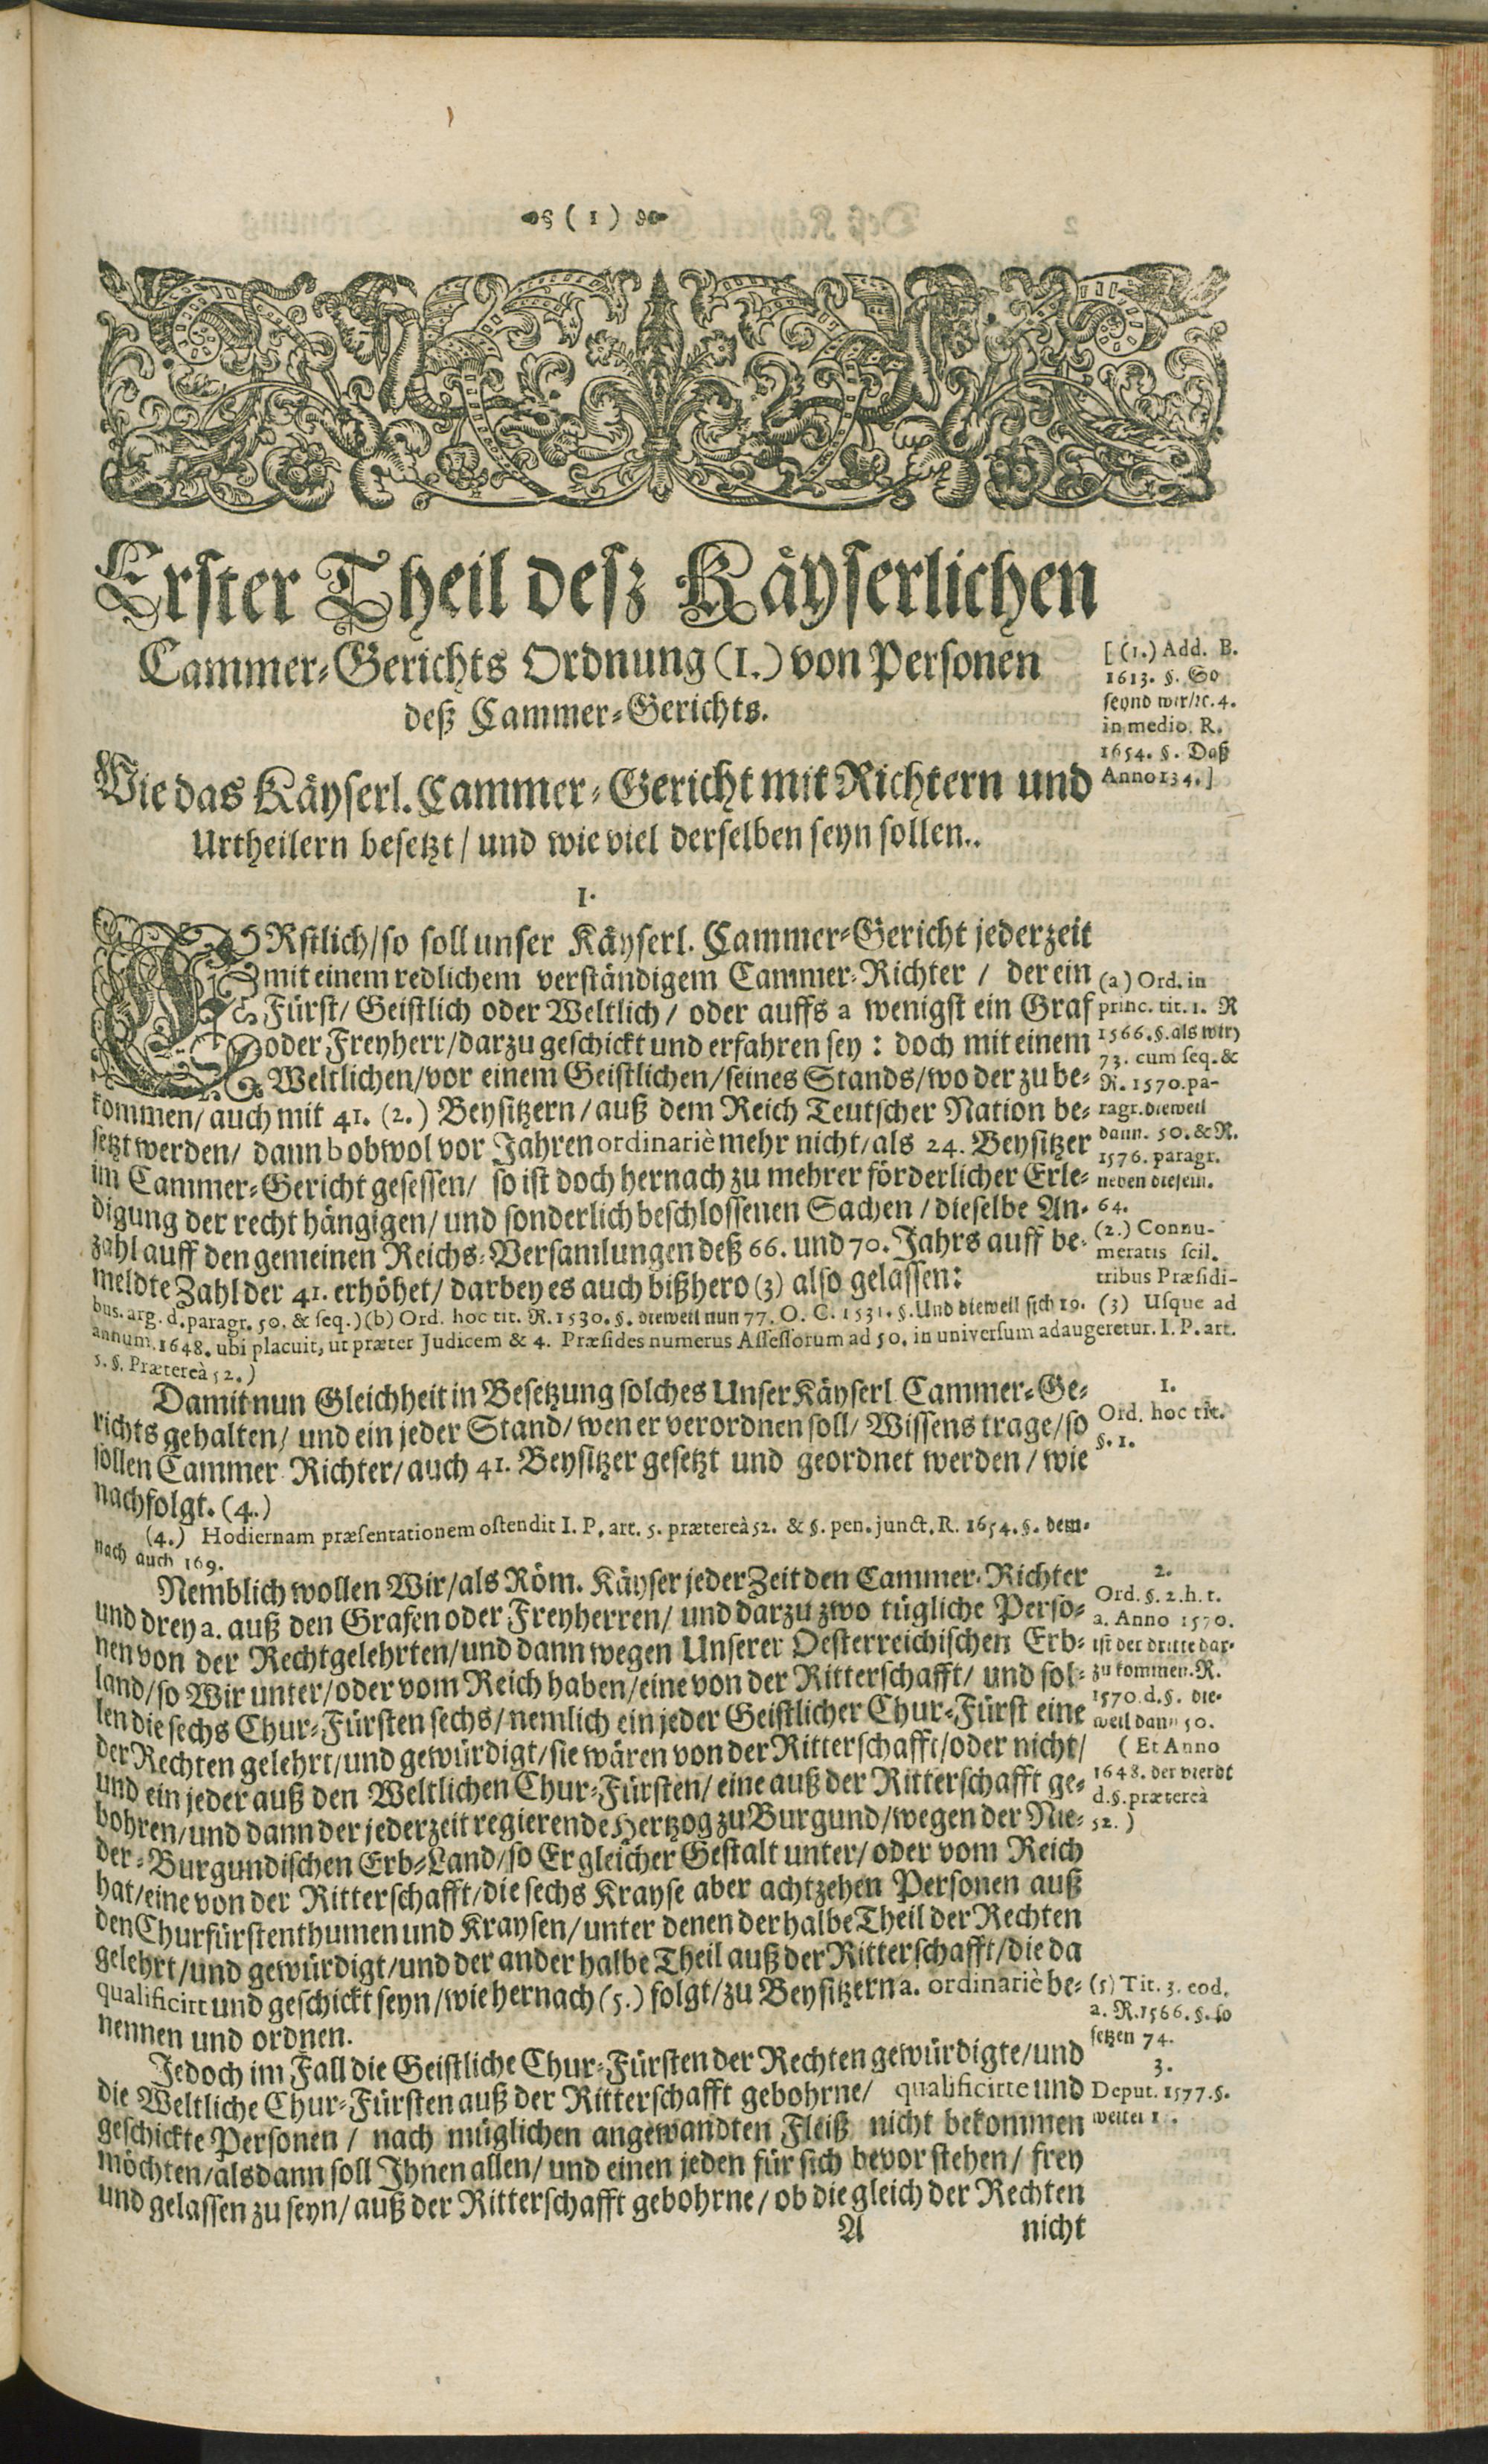 (1)
Erster Theil desz Käyserlichen
Cammer-Gerichts Ordnung (I.) von Personen
deß Cammer-Gerichts.
[(1.) Add. B.
1613. §. So
seynd wir/ꝛc. 4.
in medio. R.
1654. §. Daß
Anno 134.]
Wie das Käyserl. Cammer-Gericht mit Richtern und
Urtheilern besetzt/ und wie viel derselben seyn sollen..
I.
ERstlich/so soll unser Käyserl. Cammer-Gericht jederzeit
mit einem redlichem verständigem Cammer-Richter / der ein
Fürst/ Geistlich oder Weltlich/ oder auffs a wenigst ein Graf
oder Freyherr/darzu geschickt und erfahren sey: doch mit einem
Weltlichen/vor einem Geistlichen/seines Stands/wo der zu be-
kommen/ auch mit 41. (2.) Beysitzern/ auß dem Reich Teutscher Nation be-
setzt werden/ dann b obwol vor Jahren ordinariè mehr nicht/als 24. Beysitzer
im Cammer-Gericht gesessen/ so ist doch hernach zu mehrer förderlicher Erle-
digung der recht hängigen/ und sonderlich beschlossenen Sachen/ dieselbe An-
zahl auff den gemeinen Reichs-Versamlungen deß 66. und 70. Jahrs auff be-
meldte Zahl der 41. erhöhet/ darbey es auch bißhero (3) also gelassen:
(a) Ord. in
princ. tit. 1. R
1566. §. als wir)
73. cum seq. &
R. 1570. pa-
ragr. dieweil
dann. 50. & R.
1576. paragr.
neben diesem.
64.
(2.) Connu-
meratis scil.
tribus Præsidi-
bus. arg. d. paragr. 50. & seq.) (b) Ord. hoc tit. R. 1530. §. dieweil nun 77. O. C. 1531. §. Und dieweil sich 19. (3) Usque ad
annum. 1648. ubi placuit, ut præter Judicem & 4. Præsides numerus Assessorum ad 50. in universum adaugeretur. I. P. art.
5. §. Prætereà 52.)
Damit nun Gleichheit in Besetzung solches Unser Käyserl Cammer-Ge-
richts gehalten/ und ein jeder Stand/ wen er verordnen soll/ Wissens trage/ so
sollen Cammer Richter/ auch 41. Beysitzer gesetzt und geordnet werden/ wie
nachfolgt. (4.)
1.
Ord. hoc tit.
§. 1.
(4.) Hodiernam præsentationem ostendit I. P. art. 5. prætereà 52. & §. pen. junct. R. 1654. §. dem-
nach auch 169.
Nemblich wollen Wir/als Röm. Käyser jeder Zeit den Cammer-Richter
und drey a. auß den Grafen oder Freyherren/ und darzu zwo tügliche Perso-
nen von der Rechtgelehrten/und dann wegen Unserer Oesterreichischen Erb-
land/so Wir unter/oder vom Reich haben/eine von der Ritterschafft/ und sol-
len die sechs Chur-Fürsten sechs/nemlich ein jeder Geistlicher Chur-Fürst eine
der Rechten gelehrt/und gewürdigt/sie wären von der Ritterschafft/oder nicht/
und ein jeder auß den Weltlichen Chur-Fürsten/ eine auß der Ritterschafft ge-
bohren/und dann der jederzeit regierende Hertzog zu Burgund/wegen der Nie-
der-Burgundischen Erb-Land/so Er gleicher Gestalt unter/oder vom Reich
hat/eine von der Ritterschafft/die sechs Krayse aber achtzehen Personen auß
den Churfürstenthumen und Kraysen/unter denen der halbe Theil der Rechten
gelehrt/und gewürdigt/und der ander halbe Theil auß der Ritterschafft/die da
qualificirt und geschickt seyn/wie hernach (5.) folgt/zu Beysitzern a. ordinariè be-
nennen und ordnen.
2.
Ord. §. 2. h. t.
a. Anno 1570.
ist der dritte dar-
zu kommen. R.
1570. d. §. die-
weil dann 50.
(Et Anno
1648. der vierdt
d. §. prætereà
52.)
(5) Tit. 3. eod.
a. R. 1566. §. so
setzen 74.
Jedoch im Fall die Geistliche Chur-Fürsten der Rechten gewürdigte/und
die Weltliche Chur-Fürsten auß der Ritterschafft gebohrne/ qualificirte und
geschickte Personen / nach müglichen angewandten Fleiß nicht bekommen
möchten/alsdann soll Ihnen allen/ und einen jeden für sich bevor stehen/ frey
und gelassen zu seyn/ auß der Ritterschafft gebohrne/ ob die gleich der Rechten
3.
Deput. 1577. §.
weiter 1 .
A nicht